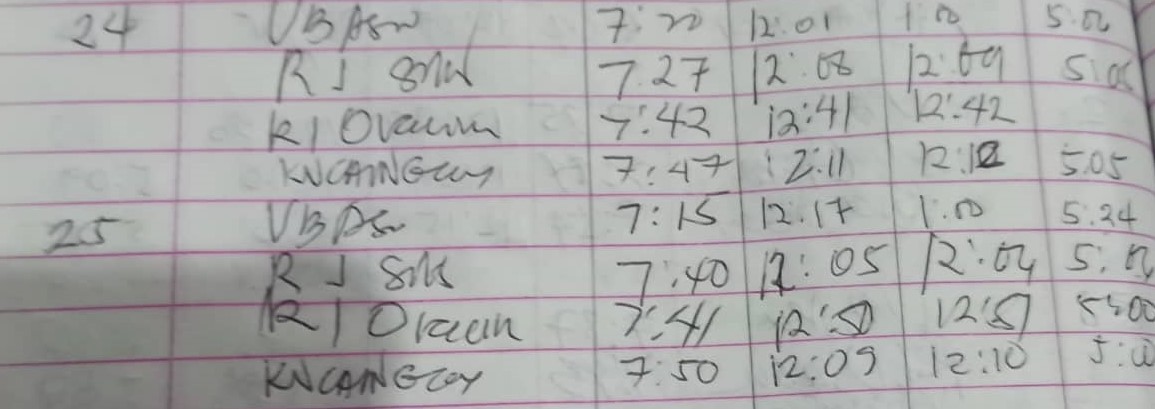 24 VBAsn 7:20 12:01 1:00 5:02
RJ 7.27 12:08 12:09 5:05
7:42 12:41 12:42
KNCAINGCOY 7:47 12:11 12:12 5.05
25 VBAsn 7:15 12.17 1:00 5.24
RJ 7:40 12:05 5:02
7:41 12:50 12:51 5:00
KNCAINGCOY 7:50 12:09 12:10 5:00